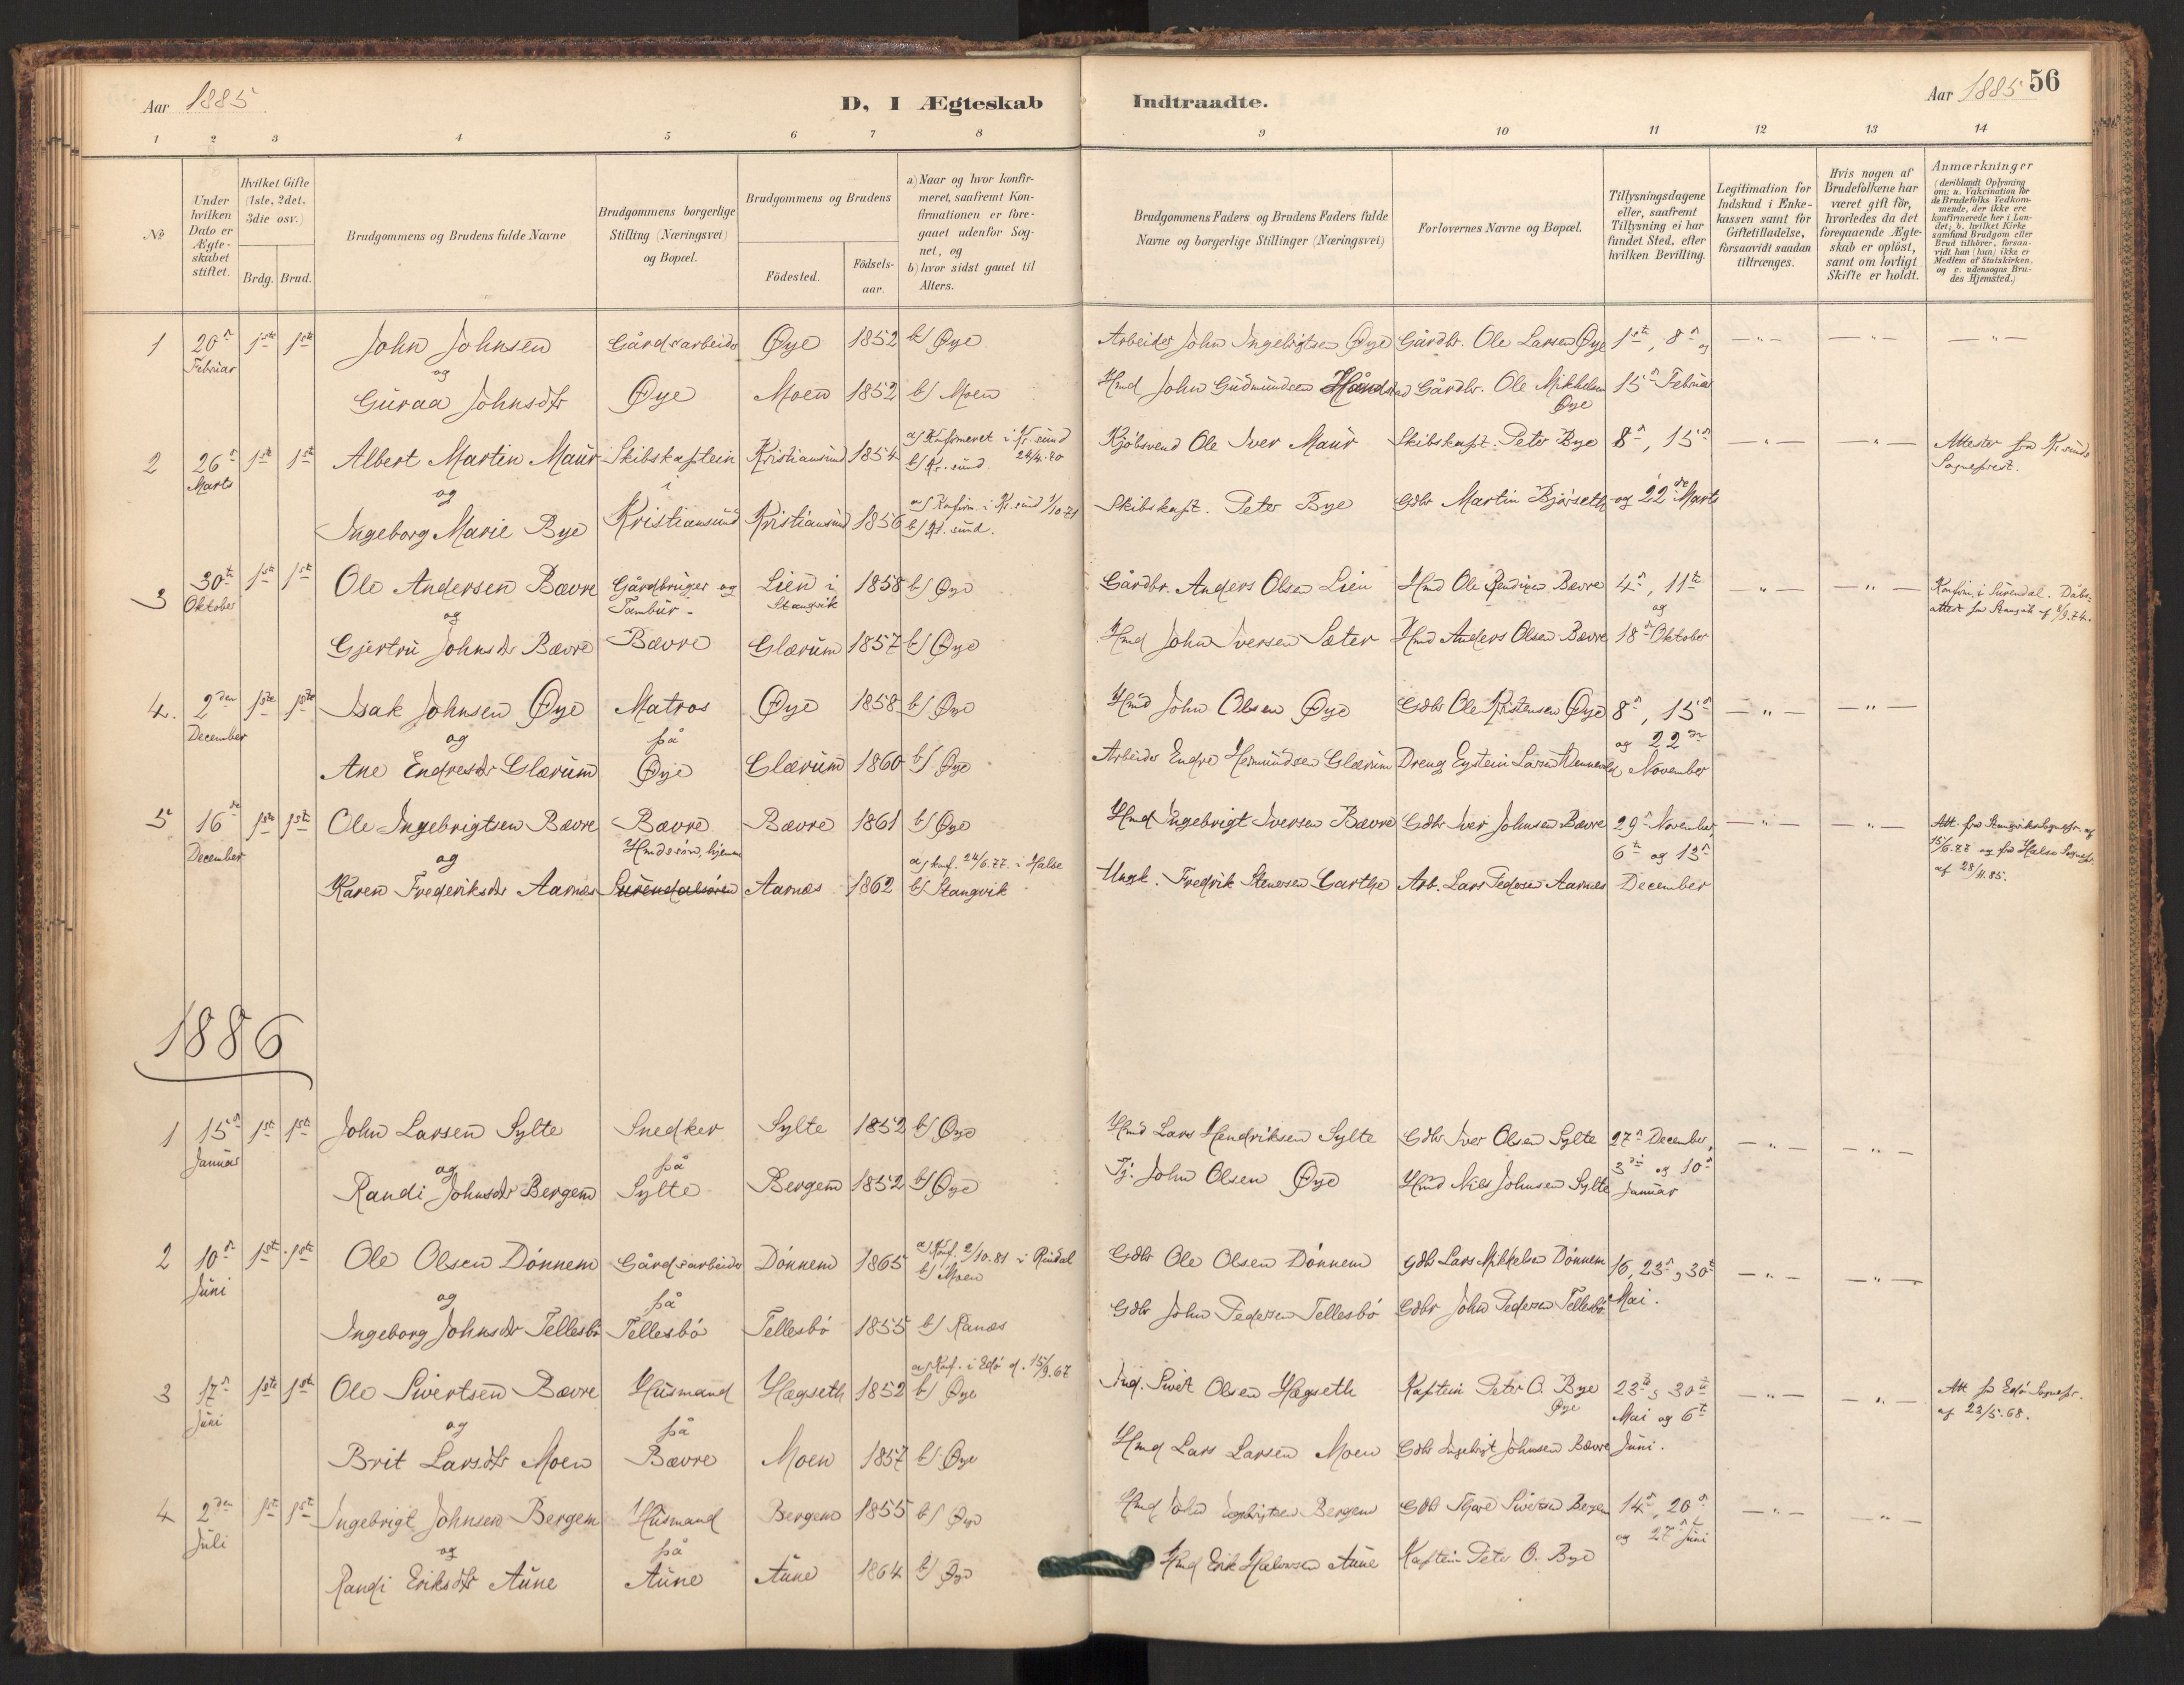 Aar 1885
D, I Ægteskab
Indtraadte.
Aar 1885 56
1 2 3 4 5 6 7 8 9 10 11 12 13 14
No
Under hvilken Dato er Ægte-skabet stiftet.
Hvilket Gifte (1ste, 2det, 3die osv.)
Brdg. Brud.
Brudgommens og Brudens fulde Navne
Brudgommens borgerlige Stilling (Næringsvei) og Bopæl.
Brudgommens og Brudens
Födested. Födsels-aar.
a) Naar og hvor konfir-meret, saafremt Kon-firmationen er fore-gaaet udenfor Sog-net, og
b) hvor sidst gaaet til Alters.
Brudgommens Faders og Brudens Faders fulde Navne og borgerlige Stillinger (Næringsvei)
Forlovernes Navne og Bopæl.
Tillysningsdagene eller, saafremt Tillysning ei har fundet Sted, efter hvilken Bevilling.
Legitimation for Indskud i Enke-kassen samt for Giftetilladelse, forsaavidt saadan tiltrænges.
Hvis nogen af Brudefolkene har været gift för, hvorledes da det foregaaende Ægte-skab er oplöst, samt om lovligt Skifte er holdt.
Anmærkninger (deriblandt Oplysning om: a. Vakcination for de Brudefolks Vedkom-mende, der ikke ere konfirmerede her i Lan-det; b. hvilket Kirke samfund Brudgom eller Brud tilhörer, forsaa-vidt han (hun) ikke er Medlem af Statskirken. og c. udensogns Bru-des Hjemsted.)
1 20de 1ste 1ste John Johnsen Gårdsarbeider Øye 1852 b) Øye Arbeider John Ingebrigtsen Øye Gårdbr. Ole Larsen Øye 1ste, 8de og — " — — " — — " —
Februar og
Guraa Johnsdtr Øye Moen 1852 b) Moen Hmd John Gudmundsen Gårdbr. Ole Mikkelsen Øye 15de Februar
2 26de 1ste 1ste Albert Martin Maur Skibskaptein Kristiansund 1854 a) Konfirmeret i Kr.sund b) Kr.sund Kjöbsvend Ole Iver Maur Skibskapt. Peter Bye 8de, 15de — " — — " — Attester fra Kr.sunds Sognepræst.
Marts og i
Ingeborg Marie Bye Kristiansund Kristiansund 1856 a) Konfirm. i Kr.sund 1/10 71 b) Kr.sund. Skibskapt. Peter Bye Gdbr Martin Bjørseth og 22de Marts
3 30te 1ste 1ste Ole Andersen Bævre Gårdbruger og Tambur - Lien i Stangvik 1858 b) Øye Gårdbr. Anders Olsen Lien Hmd Ole Bævre 4de, 11te — " — — " — Konfirm. i Surendal. Dåbs-attest fra Stangvik
Oktober og og
Gjertru Johnsdr Bævre Bævre Glærum 1857 b) Øye Hmd John Iversen Sæter Hmd Anders Olsen Bævre 18de Oktober
4. 2den 1ste 1ste Isak Johnsen Øye Matros Øye 1858 b) Øye Hmd John Olsen Øye Gdbr Ole Kristensen Øye 8de, 15de — " — — " —
December og på og 22de
Ane Endresdr Glærum Øye Glærum 1860 b) Øye Arbeider Endre Hermundsen Glærum Dreng Eystein Larsen November
5 16de 1ste 1ste Ole Ingebrigtsen Bævre Bævre Bævre 1861 b) Øye Hmd Ingebrigt Iversen Bævre Gdbr Iver Johnsen Bævre 29de November, — " — — " — Att. fra Stangviks Sognepr. af 15/6.77 og fra Halse Sognepr. af 28/11.85.
December og Hmdssön, hjemme 6te og 13de
Karen Frederiksdr Aarnæs Surendalsören Aarnæs 1862 a) konf. 24/6.77. i Halse b) Stangvik Ungk. Fredrik Stenersen Garthe Arb. Lars Pedersen Aarnæs December
1886
1 15de 1ste 1ste John Larsen Sylte Snedker Sylte 1852 b) Øye Hmd Lars Hendriksen Sylte Gdbr Iver Olsen Sylte 27de December, — " — — " —
Januar og på 3die og 10de
Randi Johnsdr Bergem Sylte Bergem 1852 b) Øye Tj. John Olsen Øye Hmd Nils Johnsen Sylte Januar
2 10de 1ste 1ste Ole Olsen Dönnem Gårdsarbeider Dönnem 1865 a) Konf. 2/10.81 i Rindal b) Moen Gdbr Ole Olsen Dönnem Gdbr Lars Mikkelsen Dönnem 16, 23de, 30te — " — — " —
Juni og på Mai.
Ingeborg Johnsdr Tellesbö Tellesbö Tellesbö 1855 b) Ranæs Gdbr John Pedersen Tellesbö Gdbr John Pedersen Tellesbö
3 17de 1ste 1ste Ole Sivertsen Bævre Husmand Hægseth 1852 a) Konf. i Edö d. 15/9.67 b) Øye Ind. Sivert Olsen Hægseth Kaptein Peter O. Bye Øye 23de, 30te — " — — " — Att fra Edö Sognepr. af 23/5.68.
Juni og på Mai og 6te
Brit Larsdtr Moen Bævre Moen 1857 b) Øye Hmd Lars Larsen Moen Gdbr Ingebrigt Johnsen Bævre Juni.
4 2den 1ste 1ste Ingebrigt Johnsen Bergem Husmand Bergem 1855 b) Øye Hmd John Ingebrigtsen Bergem Gdbr Sivertsen Bergem 14de, 20de — " — — " —
Juli og på og 27de Juni
Randi Eriksdtr Aune Aune Aune 1864 b) Øye Hmd Erik Halvorsen Aune Kaptein Peter O. Bye